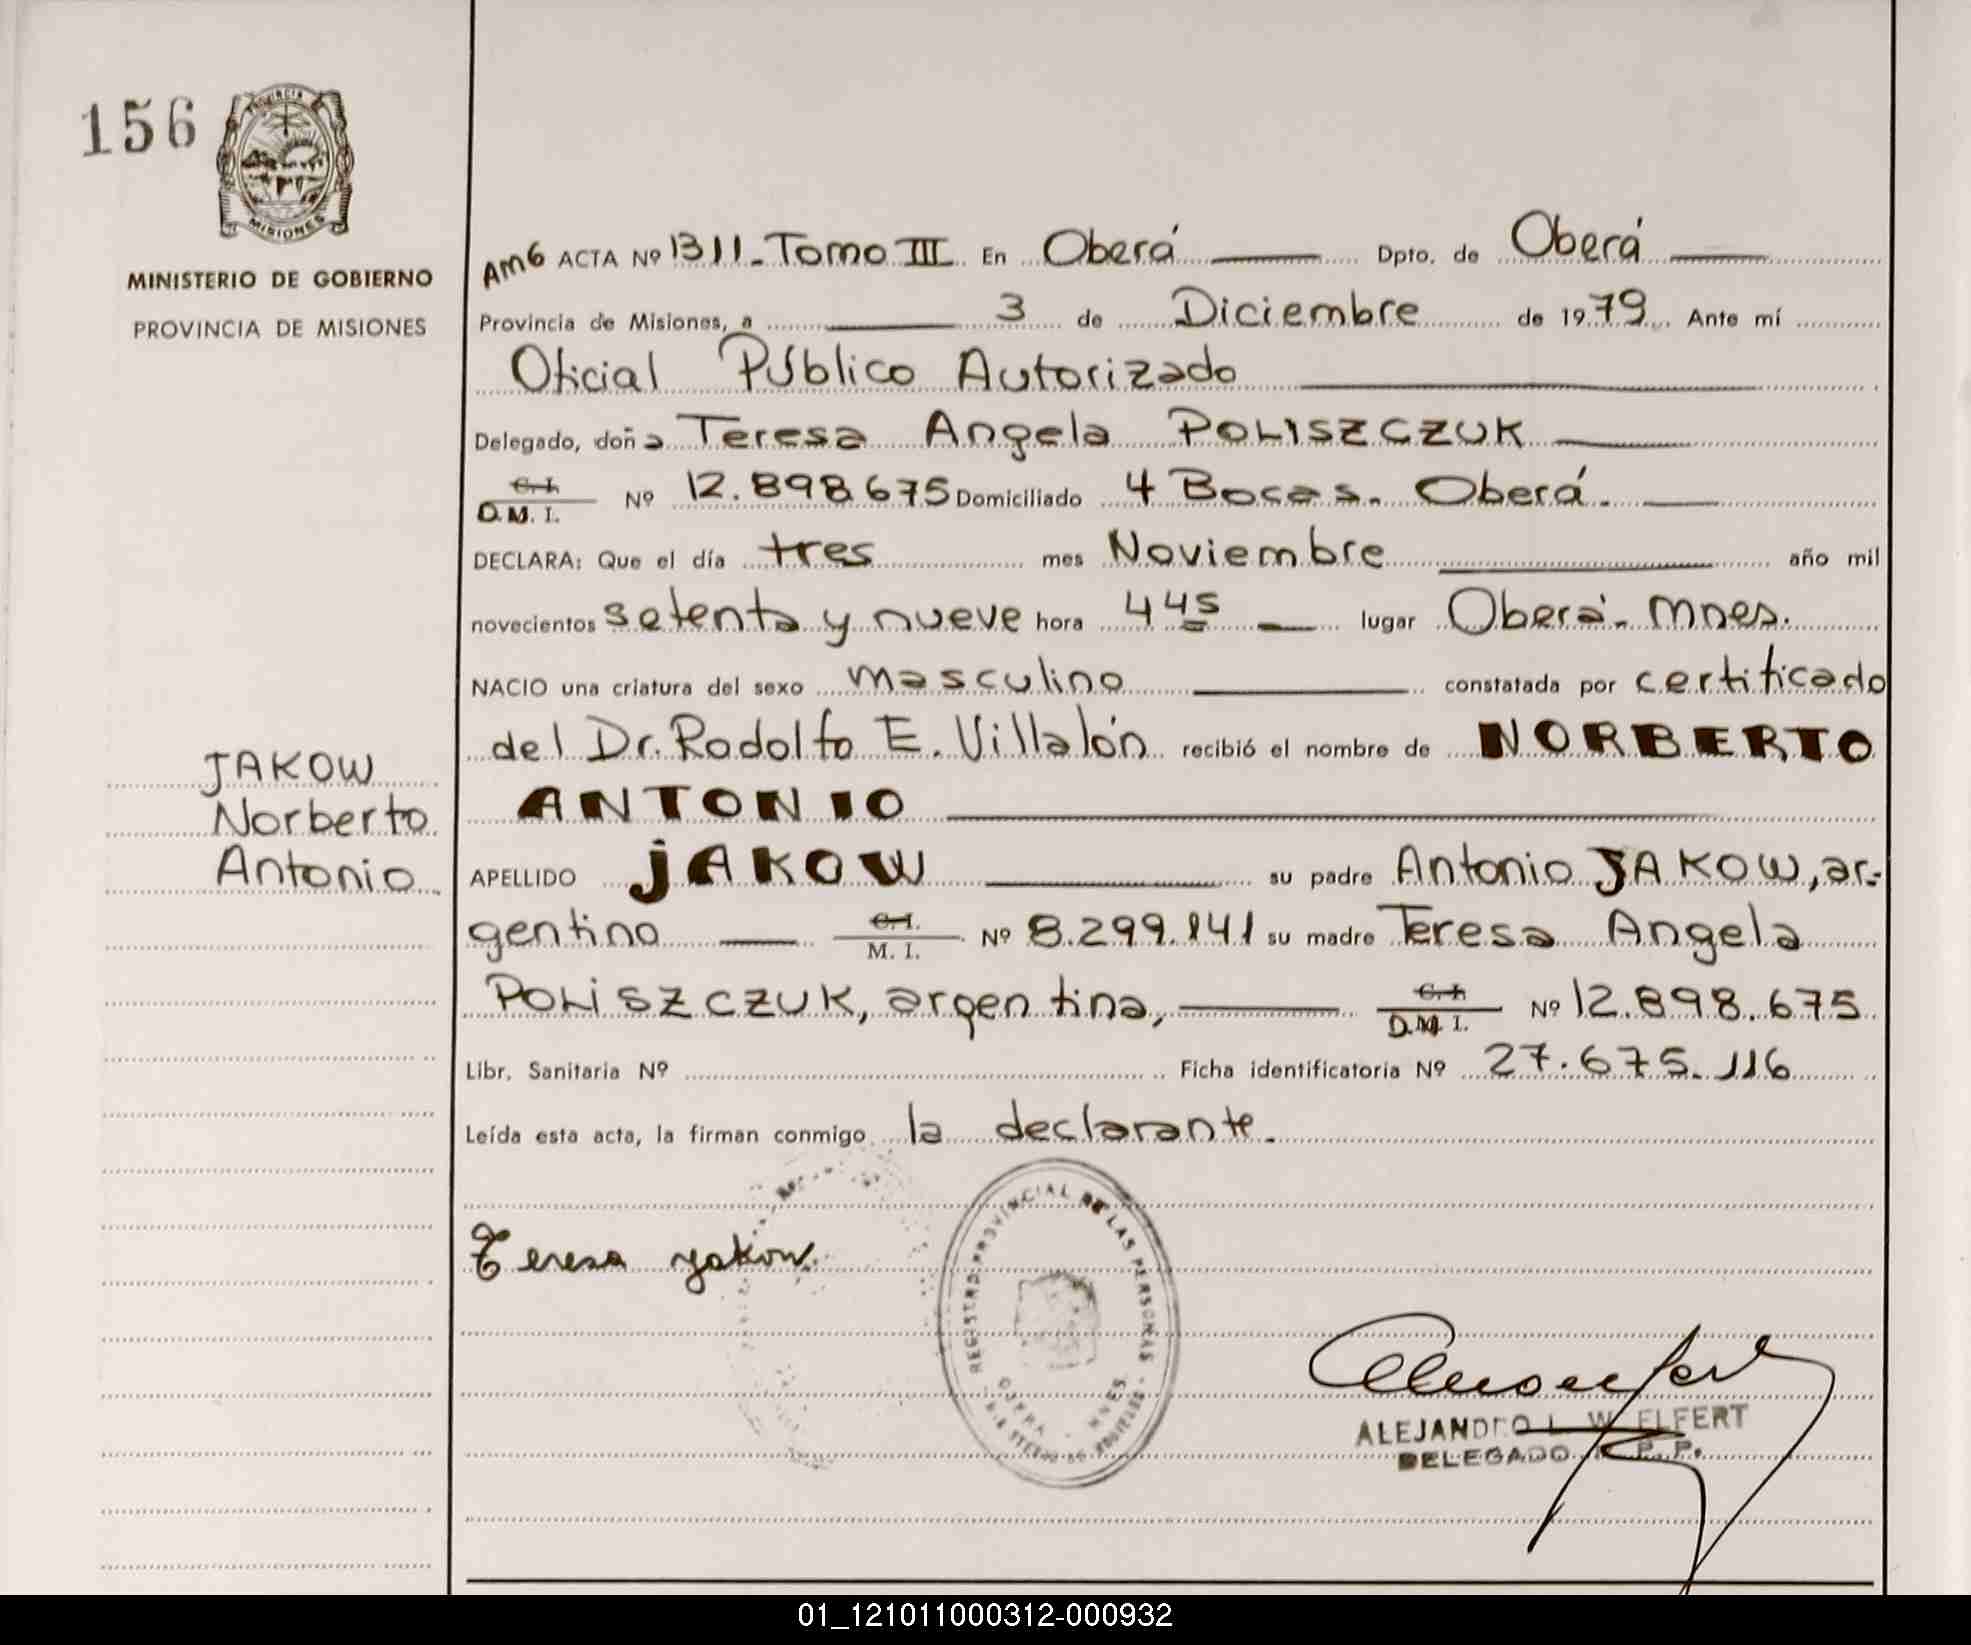 156
PROVINCIA
MISIONES
MINISTERIO DE GOBIERNO
PROVINCIA DE MISIONES
JAKOW
Norberto
Antonio
Am6 ACTA Nº 1311 - Tomo III En Oberá Dpto. de Oberá
Provincia de Misiones, a 3 de Diciembre de 1979 Ante mí
Oficial Público Autorizado
Delegado, doña Teresa Angela POLISZCZUK
C. I. D. M. I. Nº 12.898.675 Domiciliado 4 Bocas. Oberá.
DECLARA: Que el día tres mes Noviembre año mil
novecientos setenta y nueve hora 4 45 lugar Oberá - Mnes.
NACIO una criatura del sexo masculino constatada por certificado
del Dr. Rodolfo E. Villalón recibió el nombre de NORBERTO
ANTONIO
APELLIDO JAKOW su padre Antonio JAKOW, ar-
gentino C. I. M. I. Nº 8.299.141 su madre Teresa Angela
POLISZCZUK, argentina, C. I. D. M. I. Nº 12.898.675
Libr. Sanitaria Nº Ficha identificatoria Nº 27.675.116
Leída esta acta, la firman conmigo la declarante.
REGISTRO PROVINCIAL DE LAS PERSONAS
OBERA - MNES
Teresa Yakow
ALEJANDRO L. W. ELFERT
DELEGADO R. P. P.
01_121011000312-000932